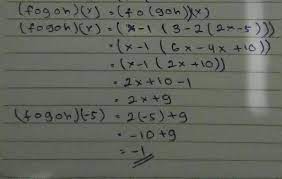 (fogoh)(x) = (fo(goh))(x)
(fogoh)(x) = (x-1 (3-2(2x-5)))
= (x-1 (6x-4x+10))
= (x-1 (2x+10))
= 2x+10-1
= 2x+9
(fogoh)(-5) = 2(-5)+9
= -10+9
= -1